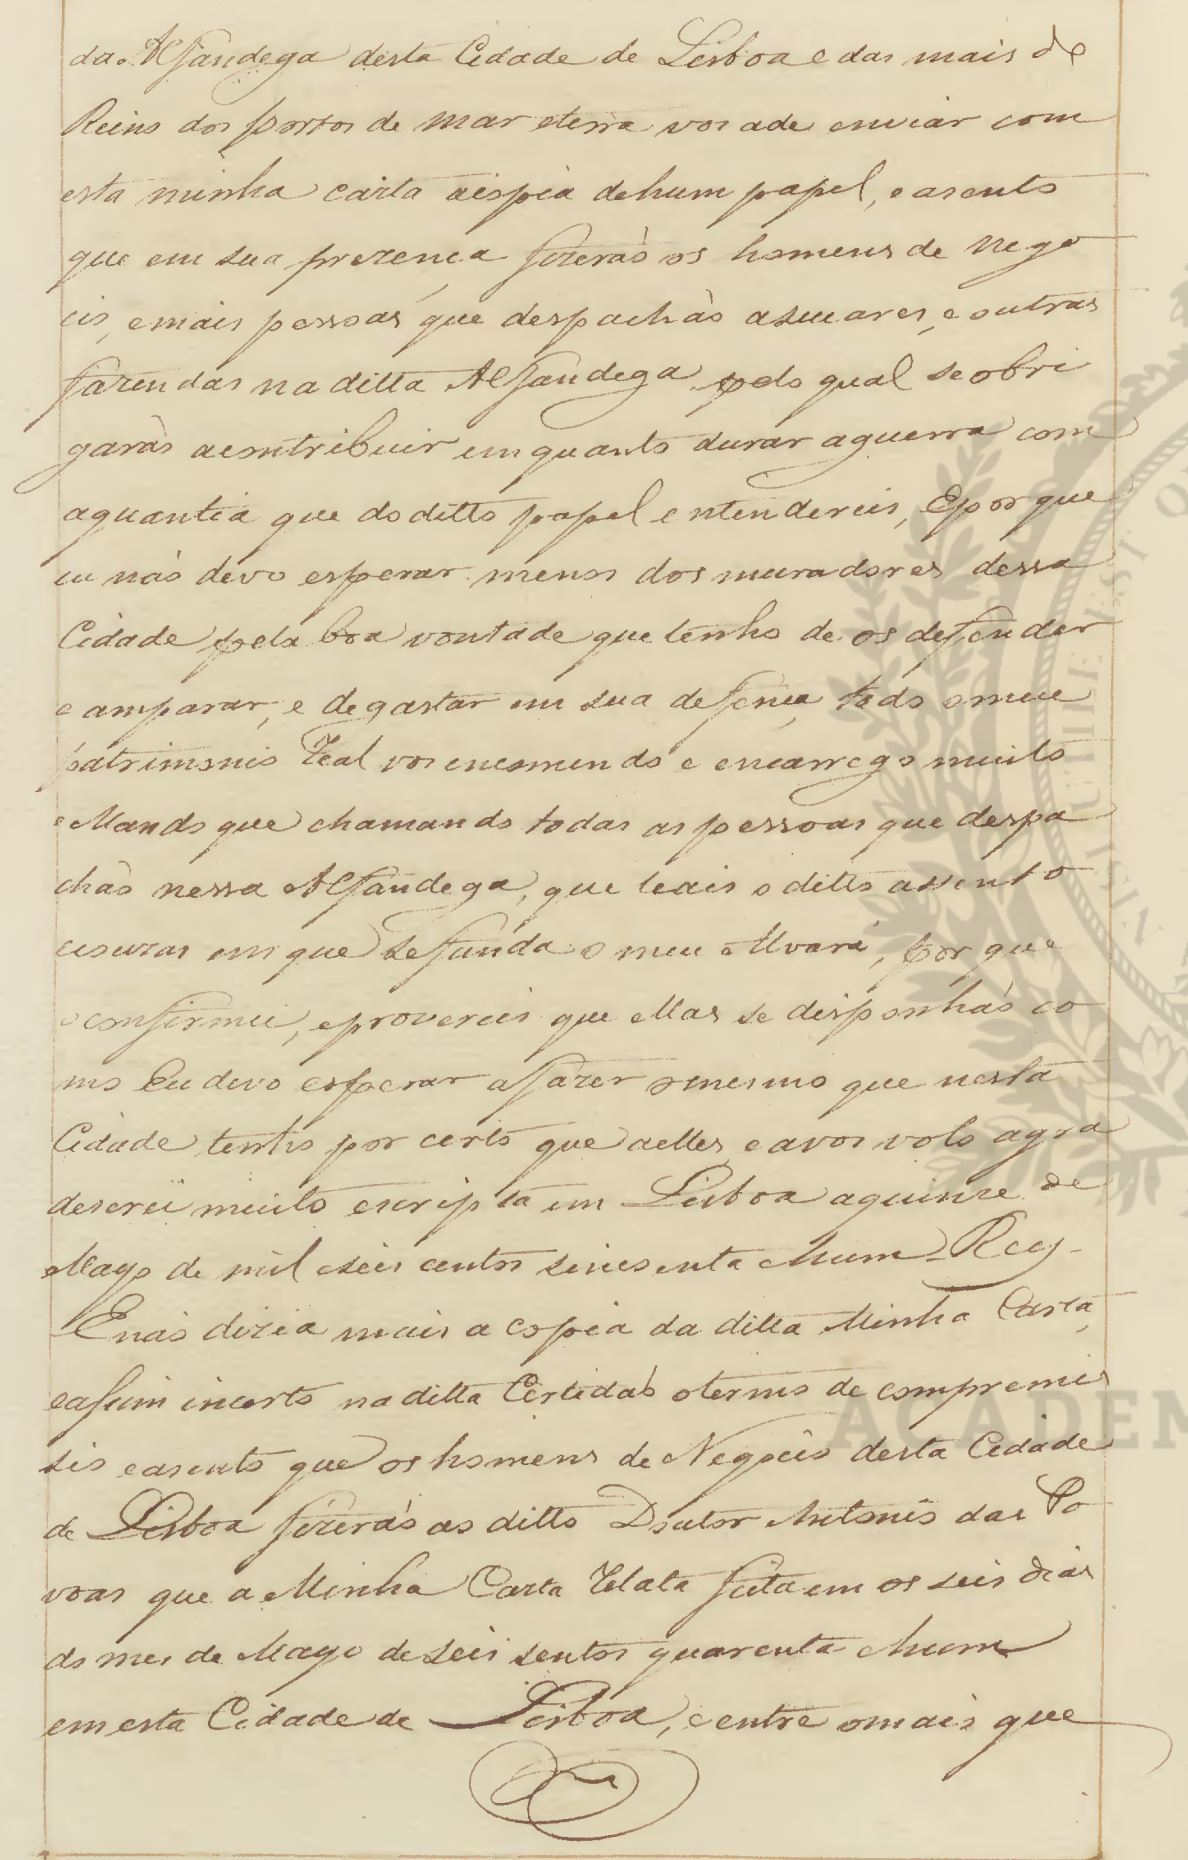 da Alfandega desta Cidade de Lisboa e das mais do
Reino dos portos de mar eterra vos ade enviar com
esta minha carta acopia dehum papel, easento
que em sua prezenca fizerão os homens de nego
cio, emais pessoas que despachão asucares, e outras
fazendas na ditta Alfandega pelo qual se obri
garão acontribuir emquanto durar aguerra com
aquantia que do ditto papel entendereis, Epor que
eu não devo esperar menos dos muradores dessa
Cidade pela boa vontade que tenho de os defender
e amparar, e de gastar em sua defenca todo omeu
patrimonio Real vos encomendo e encarrego muito
e Mando que chamando todas as pessoas que despa
chão nessa Alfandega, que leais o ditto assento
em que se funda o meu Alvará, por que
o confirmei, eprovereis que ellas se disponhão co
mo Eu devo esperar afazer omesmo que nesta
Cidade tenho por certo que aelles, eavos volo agra
deserei muito escripta em Lisboa aquinze de
Mayo de mil eseis centos sincoenta ehum Rey-
Enão dizia mais a copia da ditta Minha Carta,
eassim incerto naditta Certidão otermo de compremi
sio easento que os homens de Negocio desta Cidade
de Lisboa fizerão ao ditto Doutor Antonio das Po
voas que a Minha Carta Relata feita em os seis dias
do mes de Mayo de seis sentos quarenta ehum
em esta Cidade de Lisboa, e entre omais que
ACADEM